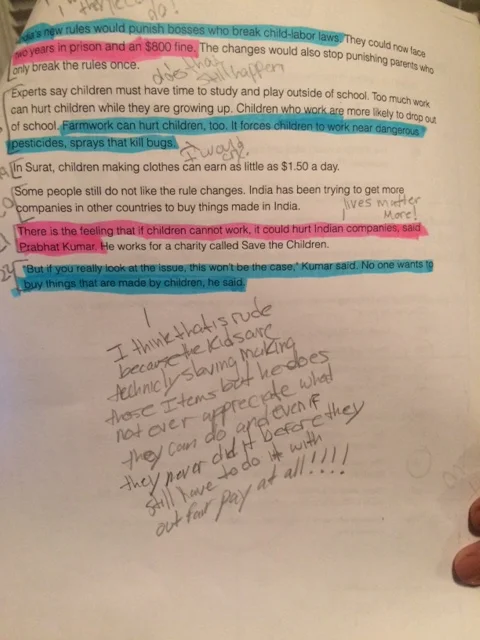 da!
India's new rules would punish bosses who break child-labor laws. They could now face
two years in prison and an $800 fine. The changes would also stop punishing parents who
only break the rules once.
does that
still happen
Experts say children must have time to study and play outside of school. Too much work
can hurt children while they are growing up. Children who work are more likely to drop out
of school. Farmwork can hurt children, too. It forces children to work near dangerous
pesticides, sprays that kill bugs.
I would
cry.
In Surat, children making clothes can earn as little as $1.50 a day.
Some people still do not like the rule changes. India has been trying to get more
companies in other countries to buy things made in India.
lives matter
More!
There is the feeling that if children cannot work, it could hurt Indian companies, said
Prabhat Kumar. He works for a charity called Save the Children.
"But if you really look at the issue, this won't be the case," Kumar said. No one wants to
buy things that are made by children, he said.
I think that is rude
because the kids are
technicly slaving making
those Items but he does
not ever appreciate what
they can do and even if
they never did it before they
still have to do it with
out fair pay at all!!!!